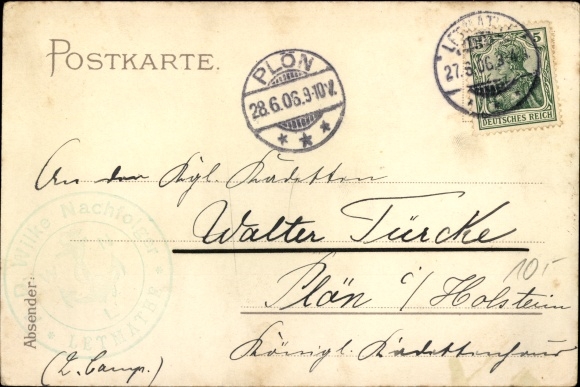 POSTKARTE.
PLÖN
28.6.06.9-10V.
LETMATHE
27.6.06.
5
DEUTSCHES REICH
An den Kgl. Kadetten
Walter Türcke
Plön i/Holstein
Königl. Kadettenhaus
(2. Comp.)
10.-
Absender:
Nachfolger
LETMATHE